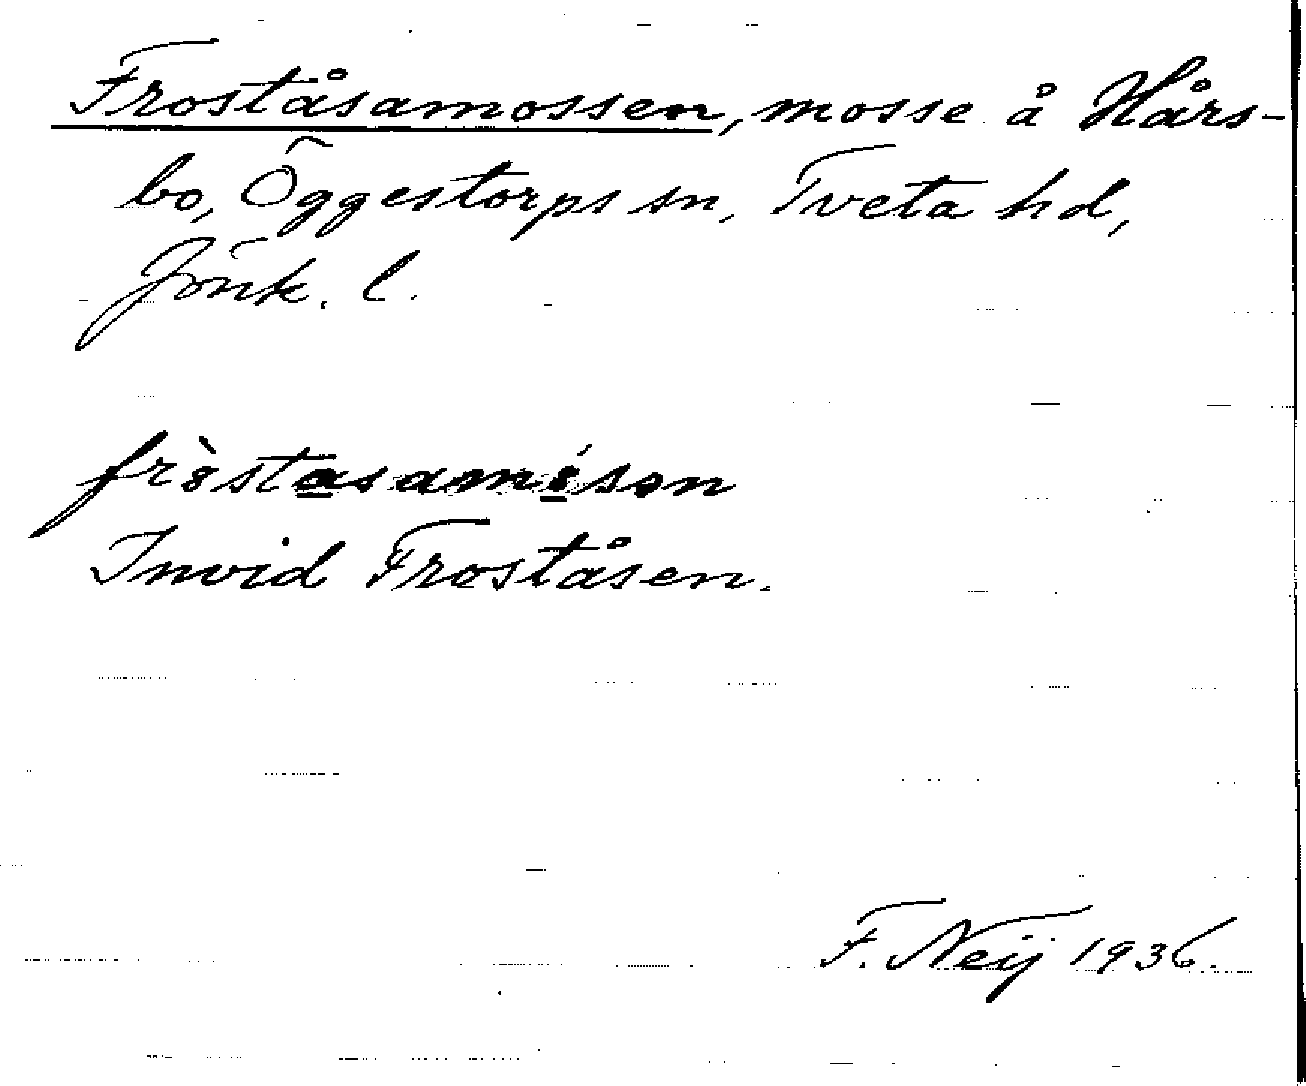 Froståsamossen, mosse å Hårs-
bo, Öggestorps sn, Tveta hd,
Jönk. l.
Invid Froståsen.
F. Neij 1936.